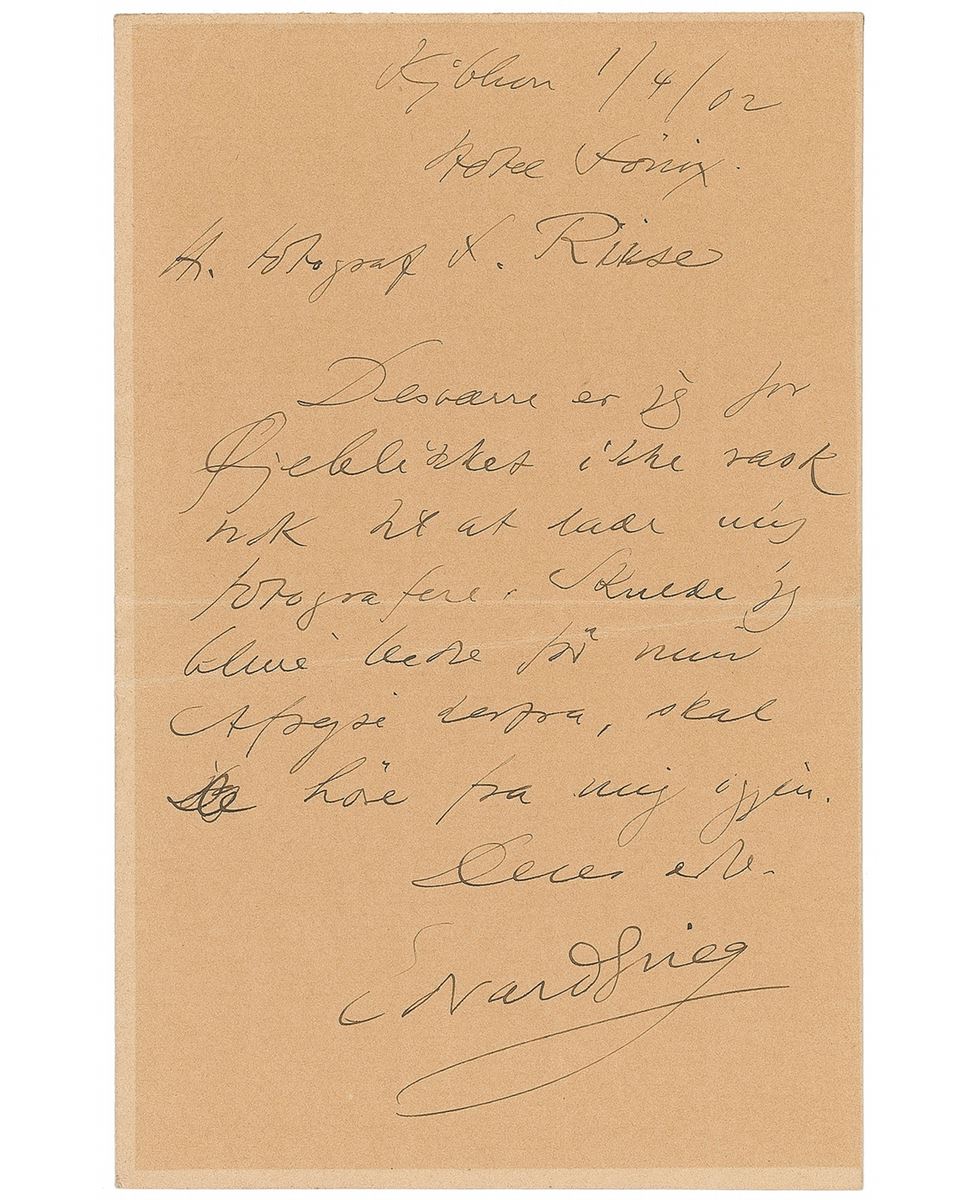 Kjbhvn 1/4/02
Hotel Fönix.
H. Fotograf X. Riise
Desværre er jeg for
Øjeblikket ikke rask
nok til at lade mig
fotografere. Skulde jeg
blive bedre för min
Afrejse herfra, skal
De höre fra mig igjen.
Deres erb.
Edvard Grieg